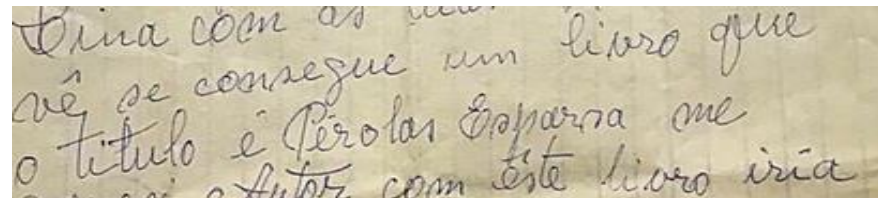 Dina com as
vê se consegue um livro que
o titulo é Pérolas Esparsa me
o Autor com êste livro iria